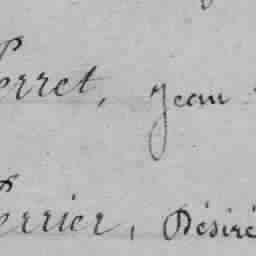 Perret, Jean
Perrier, Désiré